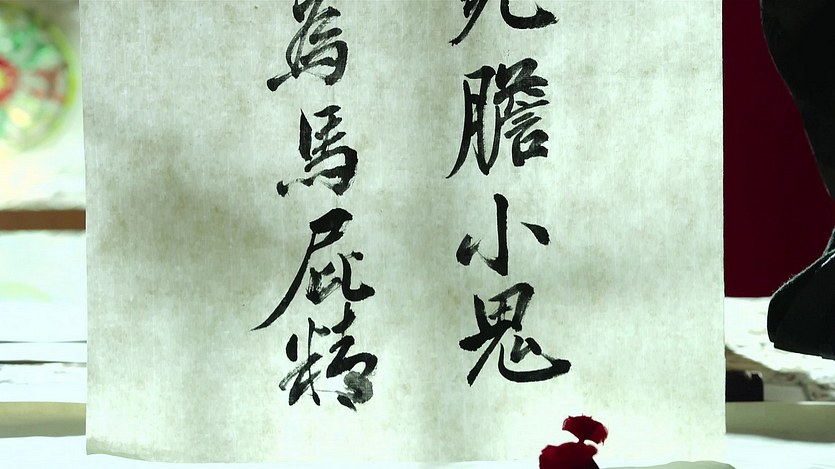 膽小鬼
為馬屁精